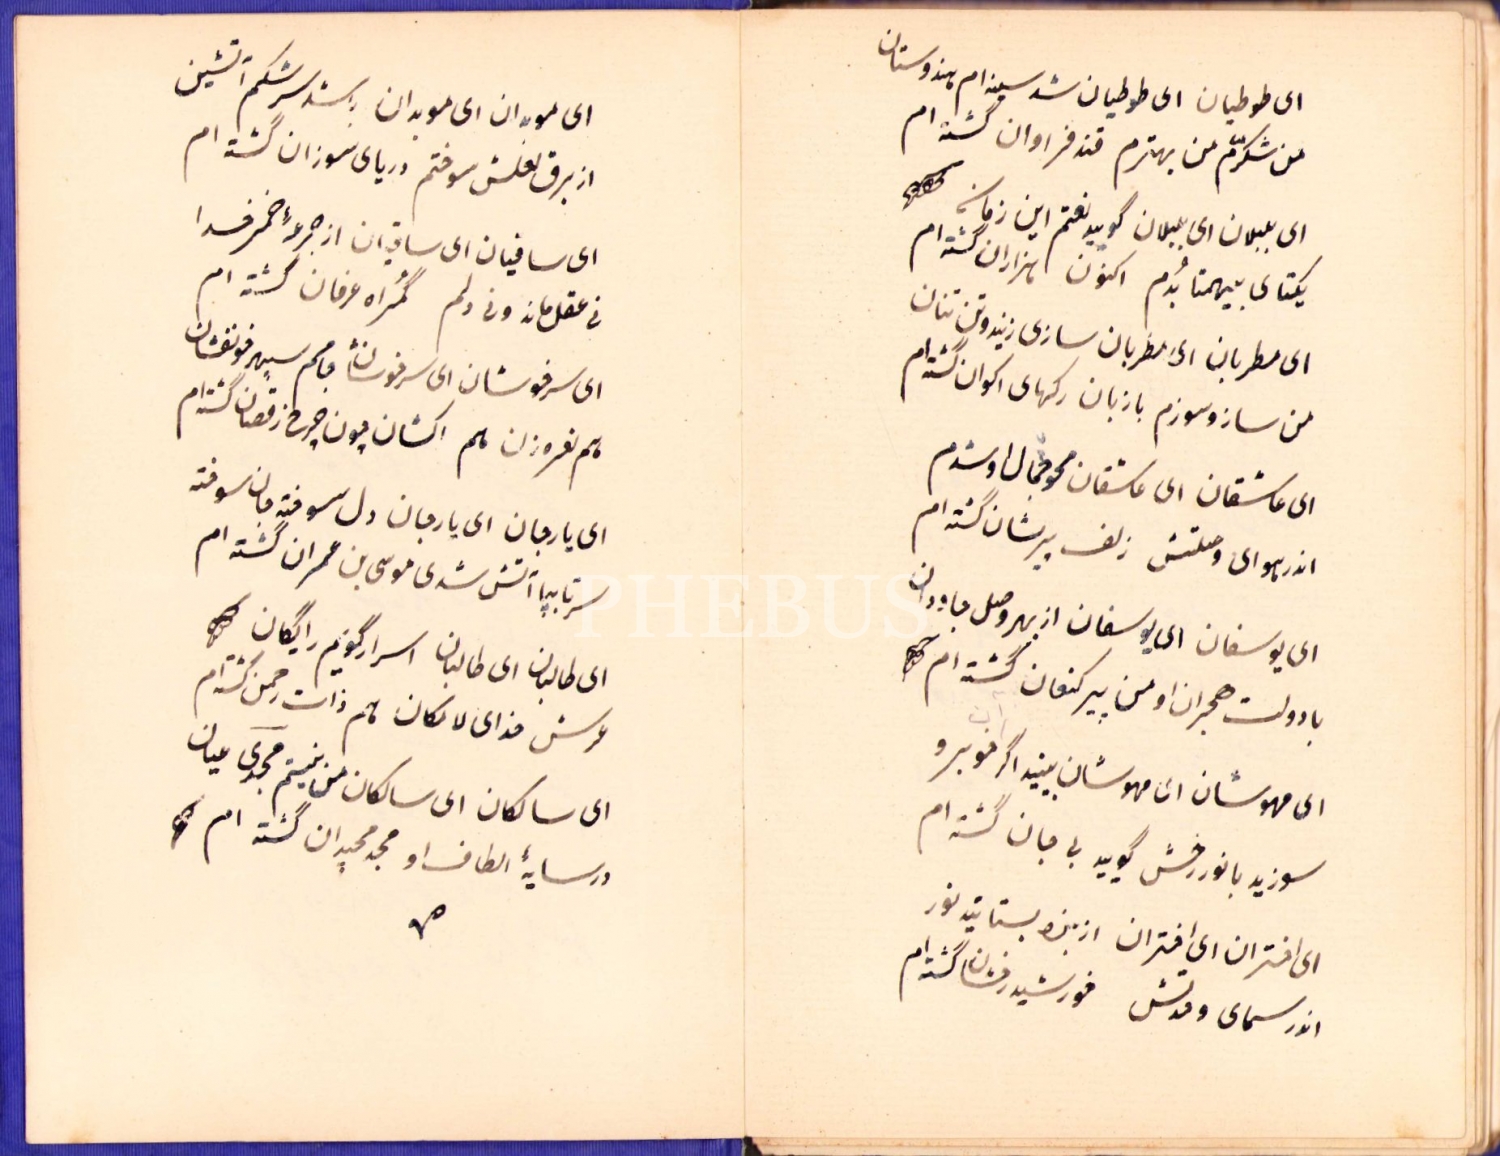 ای طوطیان ای طوطیان شد سینه ام هندوستان
من شکرم من بهترم قند فراوان گشته ام
ای بلبلان ای بلبلان گویید نعتم این زمان
یکتای بیهمتا بُدم اکنون هزاران گشته ام
ای مطربان ای مطربان سازی زنید و تن تنان
من ساز و سوزم با زبان رگهای اکوان گشته ام
ای عاشقان ای عاشقان محو جمال او شدم
اندر هوای وصلتش زلف پریشان گشته ام
ای یوسفان ای یوسفان از بهر وصل جاودان
با دولت هجران او من پیر کنعان گشته ام
ای مهوشان ای مهوشان بینید اگر خوبرو
سوزید با نور رخش گویید بی جان گشته ام
ای اختران ای اختران از بنده بستانید نور
اندر سمای وحدتش خورشید رخشان گشته ام
ای موبدان ای موبدان شد سرشکم آتشین
از برق لعلش سوختم دریای سوزان گشته ام
ای ساقیان ای ساقیان از جرعهٔ خمر خدا
نی عقل ماند و نی دلم گمراه عرفان گشته ام
ای سرخوشان ای سرخوشان جامم سپهر خونفشان
هم نعره زن هم اکشان چون چرخ رقصان گشته ام
ای یار جان ای یار جان دل سوخته جان سوخته
سر تا بپا آتش شدی موسی بن عمران گشته ام
ای طالبان ای طالبان اسرار گویم رایگان
عرش خدای لامکان هم ذات رحمن گشته ام
ای سالکان ای سالکان من نیستم مجدی عیان
در سایهٔ الطاف او مجد مجیدان گشته ام
PHEBUS